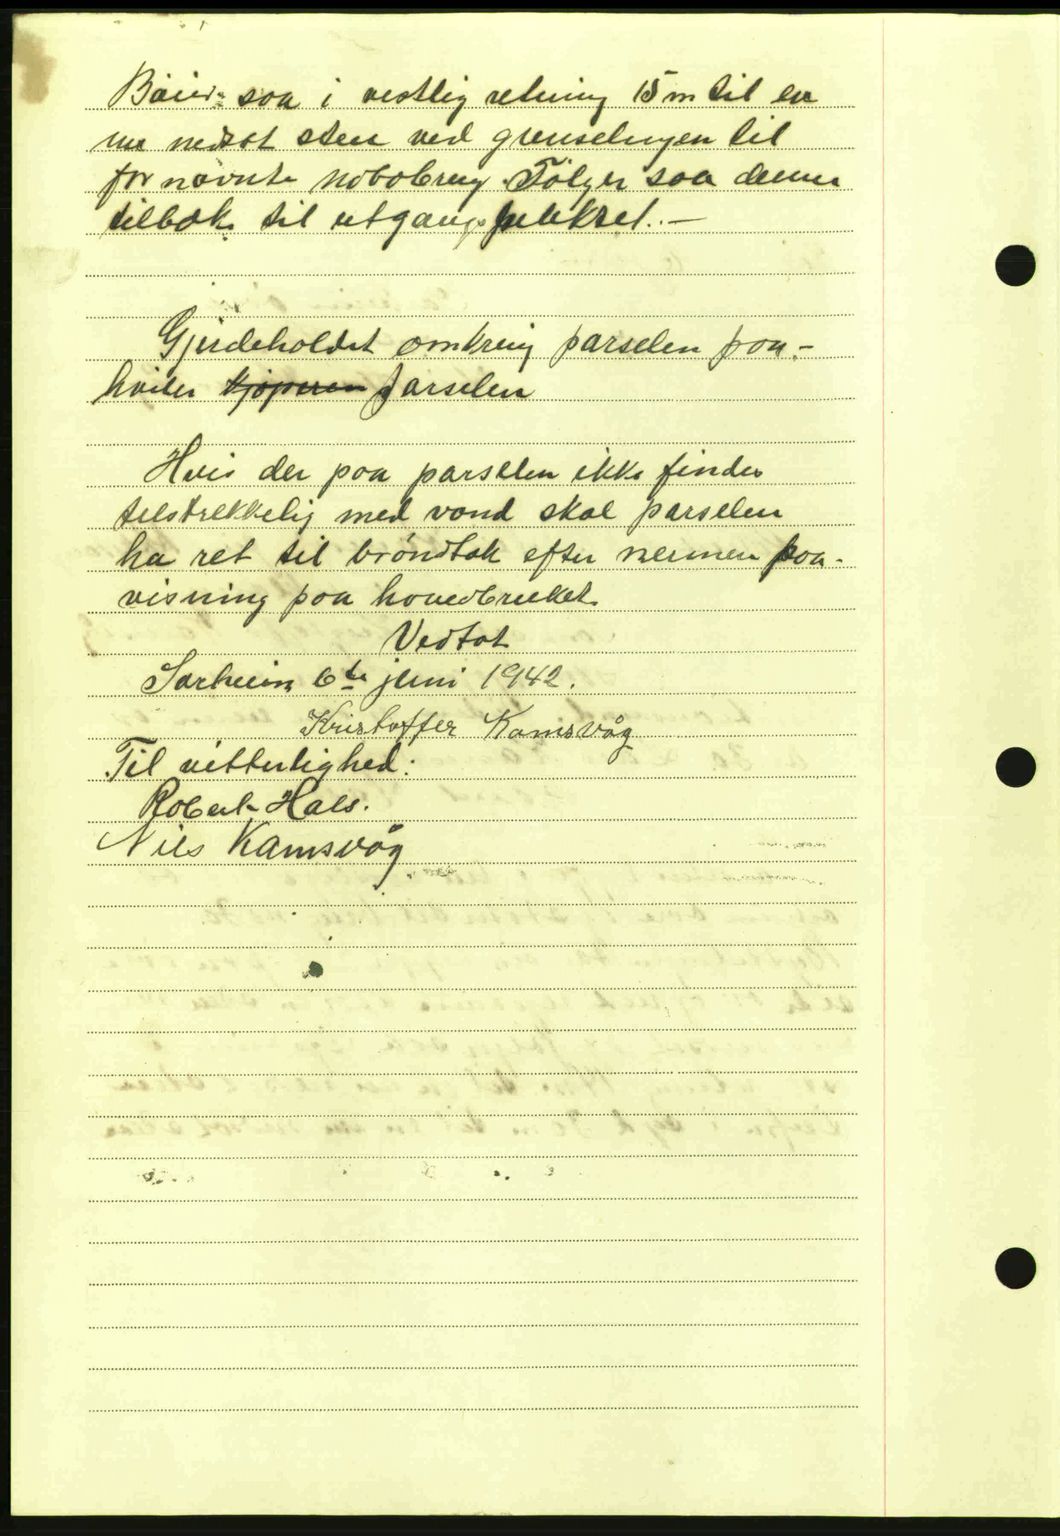 Bøier saa i vestlig retning 15 m til en
ny nedsat sten ved grenselinjen til
for nævnte nabobrug. Følger saa denne
tilbake til utgangspunktet. —
Gjerdeholdet omkring parselen paa-
hviler kjøperen parselen
Hvis der paa parselen ikke findes
tilstrekkelig med vand skal parselen
ha ret til brøndtak efter nermere paa-
visning paa hovedbruket.
Vedtat
6te juni 1942.
Kristoffer Kamsvåg
Til vitterlighed:
Robert Hals.
Nils Kamsvåg